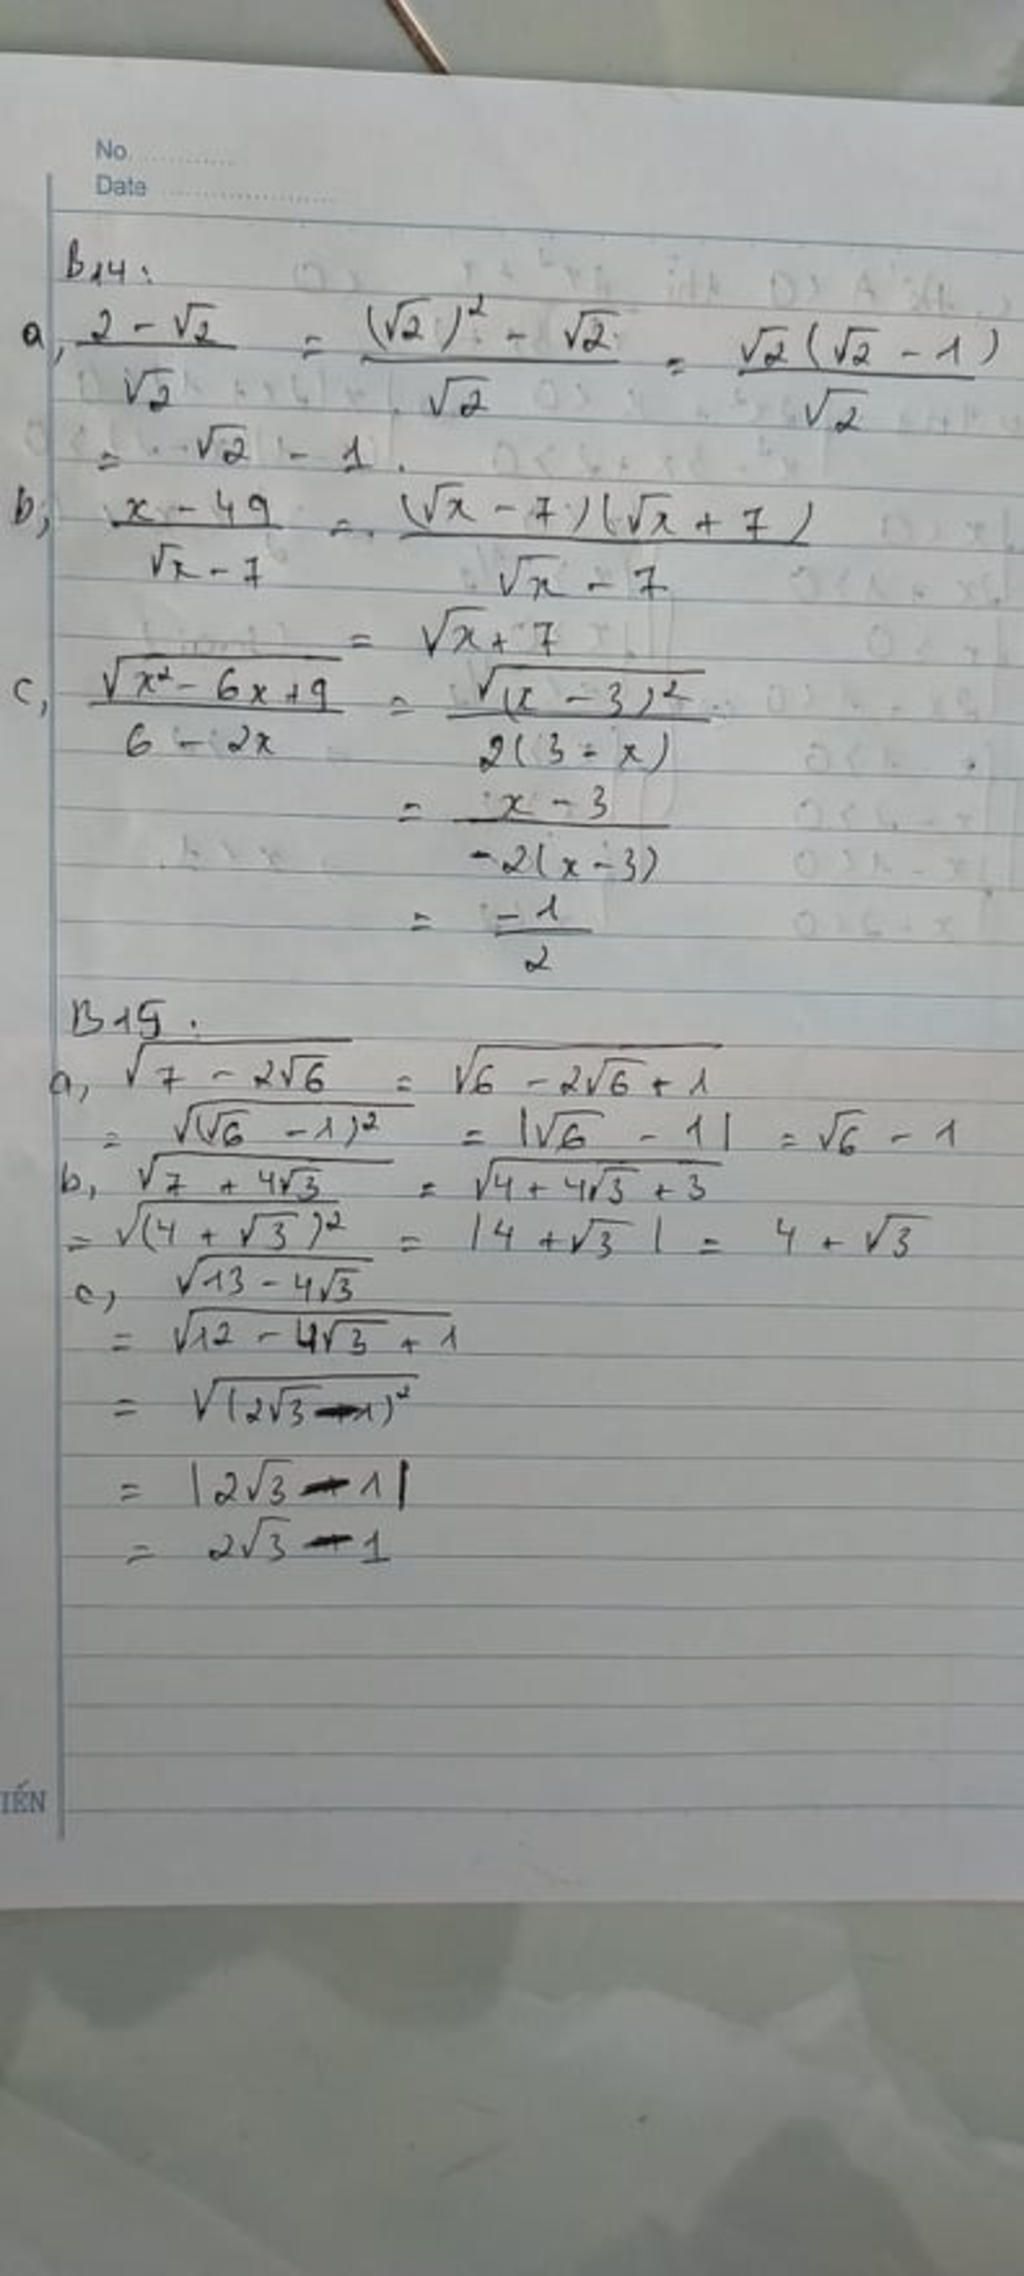 No.
Date
B14:
a, (2 - √2)/√2 = ((√2)² - √2)/√2 = √2(√2 - 1)/√2
= √2 - 1.
b, (x - 49)/(√x - 7) = (√x - 7)(√x + 7)/(√x - 7)
= √x + 7
c, √(x² - 6x + 9)/(6 - 2x) = √((x - 3)²)/(2(3 - x))
= (x - 3)/(-2(x - 3))
= -1/2
B15.
a, √(7 - 2√6) = √(6 - 2√6 + 1)
= √((√6 - 1)²) = |√6 - 1| = √6 - 1
b, √(7 + 4√3) = √(4 + 4√3 + 3)
= √((4 + √3)²) = |4 + √3| = 4 + √3
c, √(13 - 4√3)
= √(12 - 4√3 + 1)
= √((2√3 - 1)²)
= |2√3 - 1|
= 2√3 - 1
IẾN